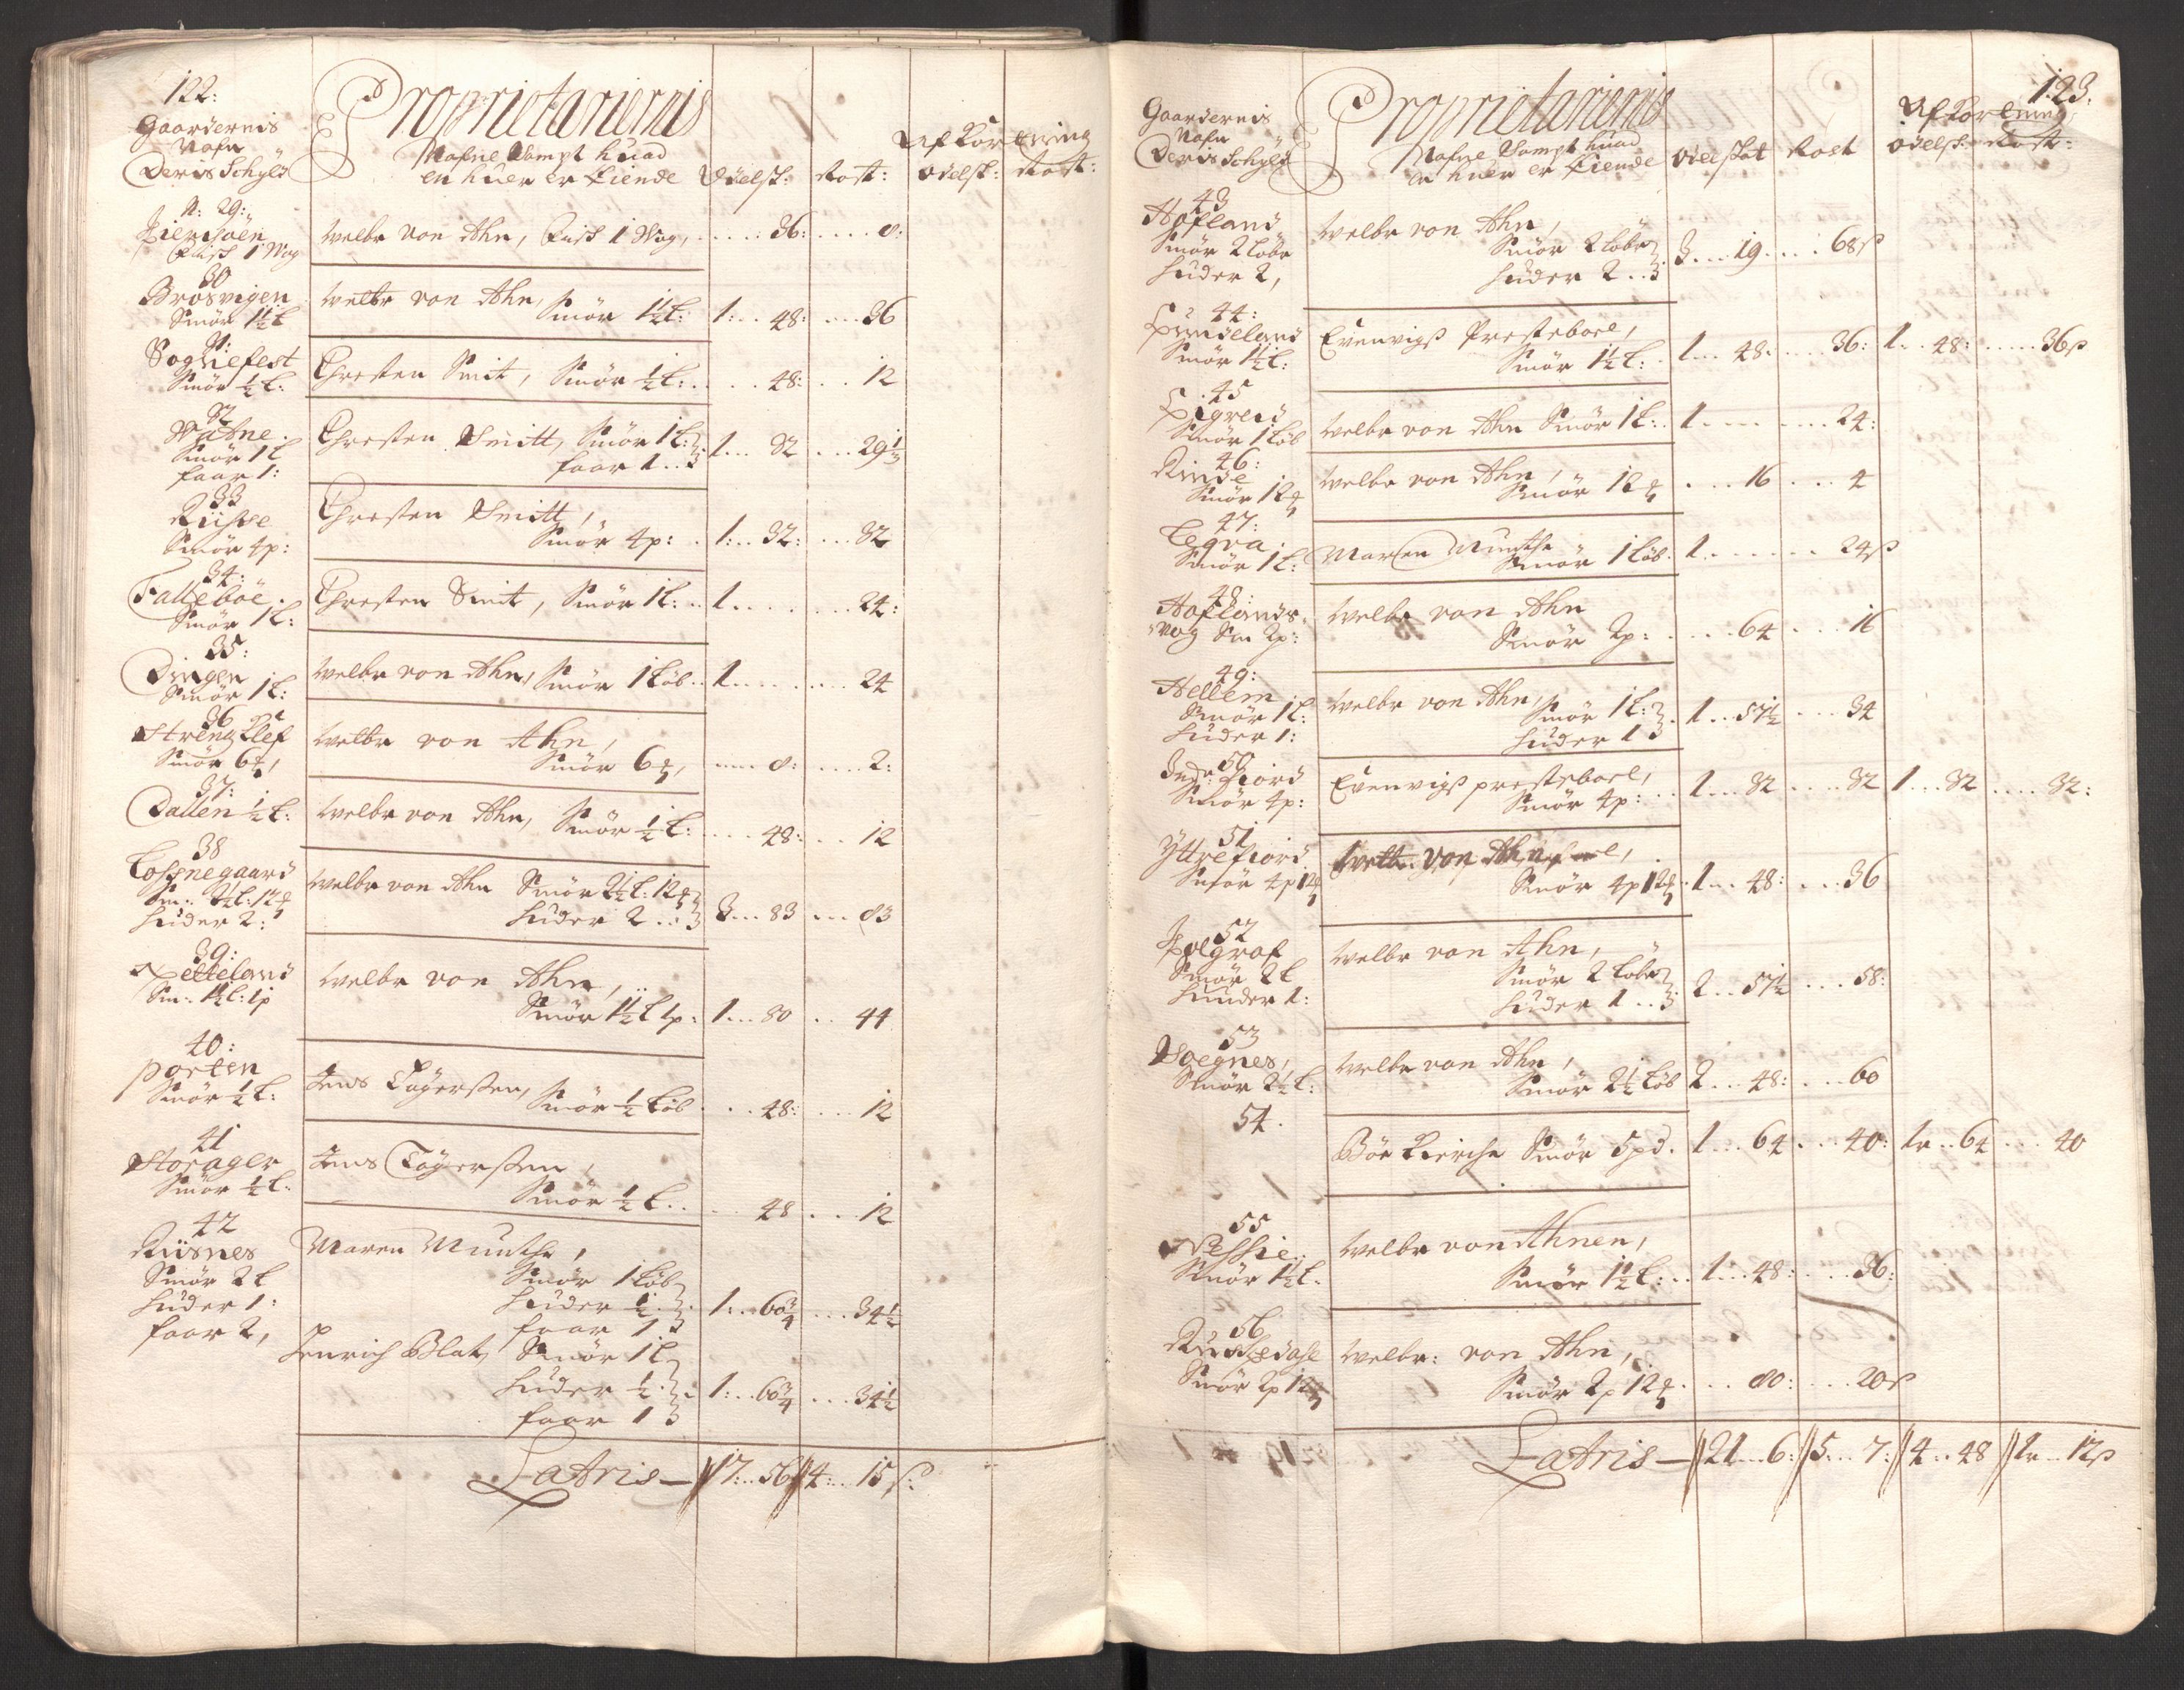 122:
Gaardernis
Nafn
Deris Schyld
Proprietariernis
Nafne Sampt huad
en huer er Eiende
Odelsk:
Rost:
Afkortning
Odelsk: Rost:
N: 29:
Fisch 1 Wog
Welbr von Ahn, Fisch 1 Wog, .... 36: .... 8:
30
Brosvigen
Smör 1½ L
Welbr von Ahn, Smör 1½ L: 1: .. 48: .... 36
31:
Sogliefest
Smör ½ L:
Chresten Smit, Smör ½ L: .... 48: ... 12
32
Watne
Smör 1 L
faar 1:
Chresten Smitt, Smör 1 L:
faar 1 .. 1 ... 32 ... 29⅓
33
Riisse
Smör 4p:
Chresten Smitt,
Smör 4p: . 1: .. 32: ... 32
34:
Falleböe
Smör 1 L:
Chresten Smit, Smör 1 L: .. 1 ...... 24:
35:
Dingen
Smör 1 L:
Welbr von Ahn, Smör 1 Löb .. 1 ...... 24
36
Strengllef
Smör 6 ,
Welbr von Ahn,
Smör 6 , .... 8: .... 2:
37:
Dallen ½ L:
Welbr von Ahn, Smör ½ L: .... 48: ... 12
38
Losnegaard
Sm: 2½ L: 12
Huder 2:
Welbr von Ahn Smör 2½ L: 12
Huder 2 .. 3 ... 83 ... 83
39:
Sm: 1½ L: 1p
Welbr von Ahn,
Smör 1½ L 1p: 1 ... 80 .. 44
40:
Porten
Smör ½ L:
Jens Töyersen, Smör ½ Löb . .. 48: ... 12
41
Storager
Smör ½ L:
Jens Töyersen,
Smör ½ L .. ... 48 ... 12
42
Riisnes
Smör 2 L
Huder 1:
faar 2,
Maren Munthe,
Smör 1 Löb
Huder ½ . 1: .. 60¾ ... 34½
faar 1
Henrich Blat, Smör 1 L
Huder ½ . 1: .. 60¾ ... 34½
faar 1
Latris — 17: .. 56 4: .. 15 s:
123.
Gaardernis
Nafn
Deris Schyld
Proprietariernis
Nafne Sampt huad
en huer er Eiende
Odelskat
Rost
Afkortning
Odelsk: Rost:
43
Hofland
Smör 2 Löbe
Huder 2,
Welbr von Ahn,
Smör 2 Löbe
Huder 2 .. 3 ... 19 .... 68 s
44:
Smör 1½ L:
Evenvigs Presteboel,
Smör 1½ L: . 1 ... 48. .... 36: 1 .. 48: ..... 36 s
45
Smör 1 Löb
Welbr von Ahn Smör 1 L: .. 1 ........ 24:
46:
Rinde
Smör 12
Welbr von Ahn,
Smör 12 . .. 16 ... 4
47:
Tegra
Smör 1 L:
Maren Munthe
Smör 1 Löb. 1 ....... 24 s
48:
Hoflands
vog Sm 2p:
Welbr von Ahn
Smör 2p: .... 64 ... 16
49:
Hellem
Smör 1 L:
Huder 1:
Welbr von Ahn,
Smör 1 L:
Huder 1 . 1 ... 57½ ... 34
50
Indr fiord
Smör 4p:
Evenvigs presteboel,
Smör 4p: .. 1 ... 32 .... 32 1 ... 32 .... 32:
51
Yttrefiord
Smör 4p 12
Welbr von Ahn,
Smör 4p 12 . 1 ... 48: ... 36
52
Smör 2 L
Huuder 1:
Welbr von Ahn,
Smör 2 Löbe
Huder 1 .. 2 .. 57½ ... 58:
53
Noegnes,
Smör 2½ L:
Welbr von Ahn,
Smör 2½ Löb 2 ... 48: ... 60
54.
Böe Kierche Smör 5 pd. 1 ... 64 ... 40: 1 .. 64 ... 40
55
Smör 1½ L.
Welbr von Ahnen,
Smör 1½ L: .. 1 ... 48: .... 36:
56
Smör 2p 12
Welbr: von Ahn,
Smör 2p 12 . .. 80: ... 20 s
Latris — 21 ... 6: 5 ... 7: 4 .. 48 1 .. 12 s